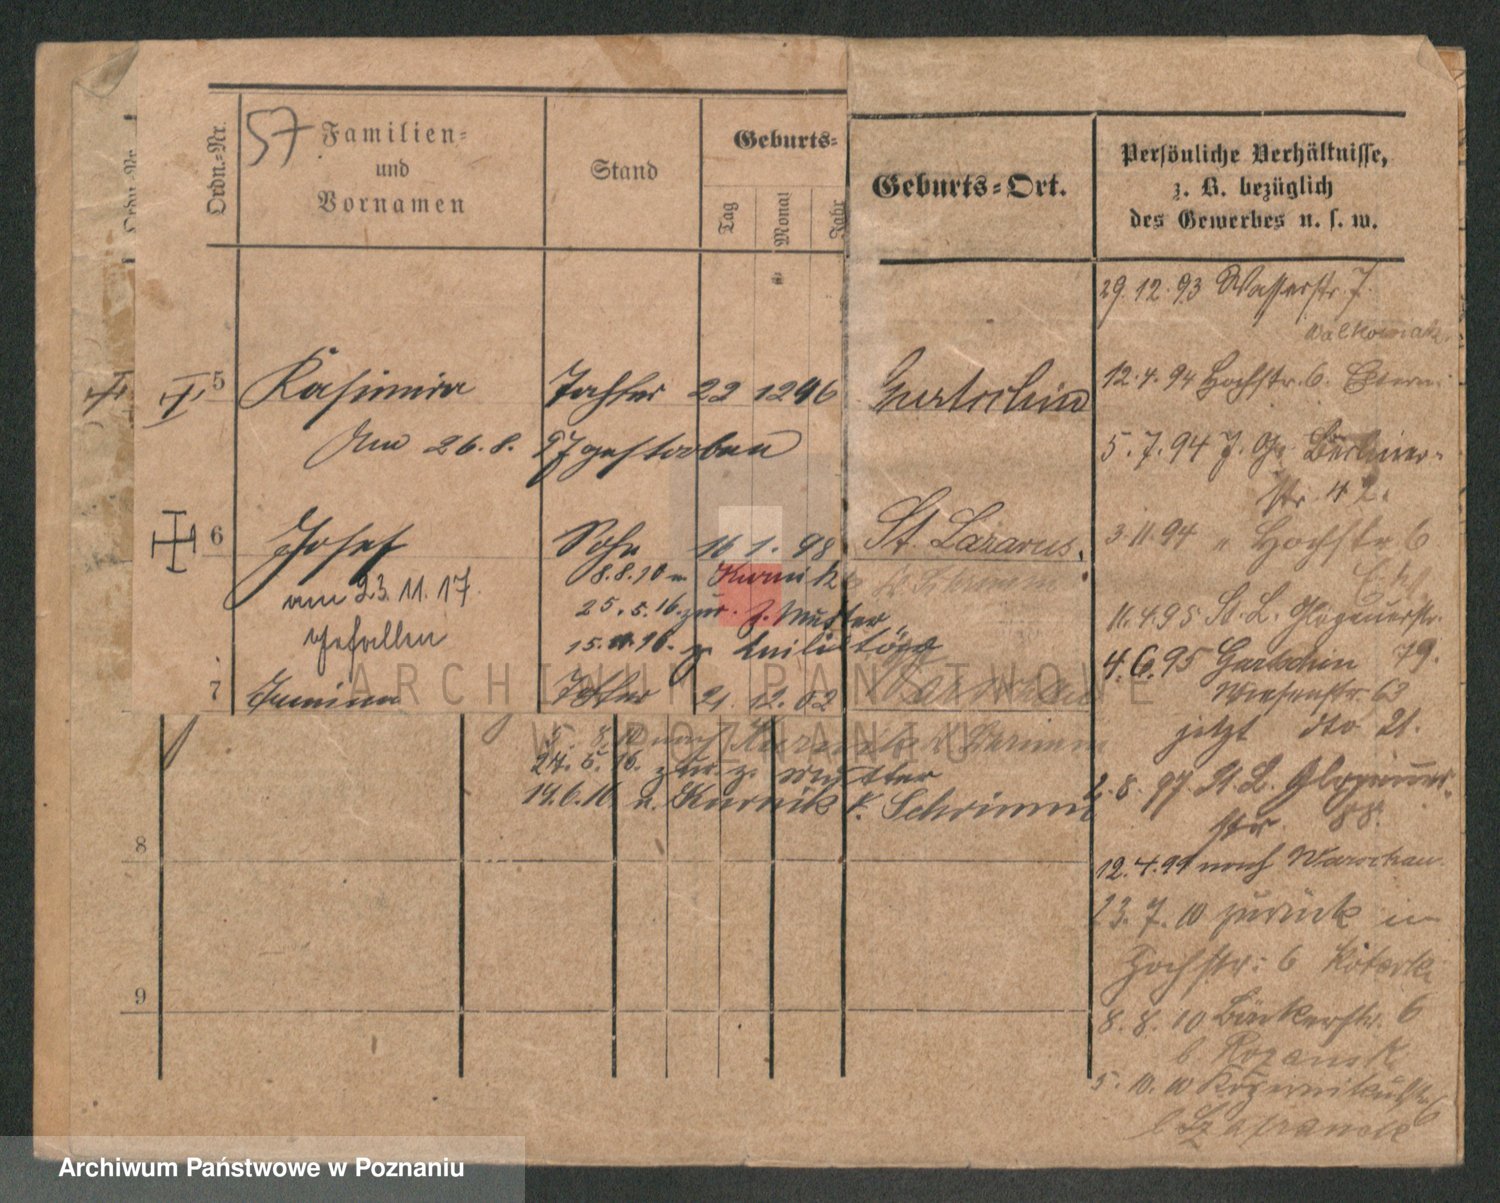 57
Ordn.=Nr.
Familien=
und
Vornamen
Stand
Geburts=
Tag
Monat
Jahr
Geburts=Ort.
Persönliche Verhältnisse,
z. B. bezüglich
des Gewerbes u. s. w.
29.12.93 Wasserstr. 7.
Walkowiak
5 Kasimira Tochter 22 12 96 Gurtschin
am 26.8.97 gestorben
6 Josef Sohn 16 1. 98 St. Lazarus.
am 23.11.17.
gefallen
8.8.10 n. Kurnik
25.5.16. zur. z. Mutter
15. 16. z. Militär
7 Tochter 21. 12. 02
8. 8. 10 nach Kurnik Schrimm
24. 5. 16. zur. z. Mutter
14.6.16 n. Kurnik K. Schrimm
8
9
12.4.94 Hochstr. 6.
5.7.94 J. Gr. Berliner-
str. 42.
3.11.94 n Hochstr 6
11.4.95 St. L. Glogauerstr.
4.6.95 Gurtschin 79.
Wiesenstr. 63
jetzt dto 21.
2.8.97 St. L. Glogauer-
str. 88.
12.4.99 nach Warschau
23.7.10 zurück in
Hochstr: 6
8.8.10 Bäckerstr. 6
b
5.10.10
b
ARCHIWUM PAŃSTWOWE
W POZNANIU
Archiwum Państwowe w Poznaniu